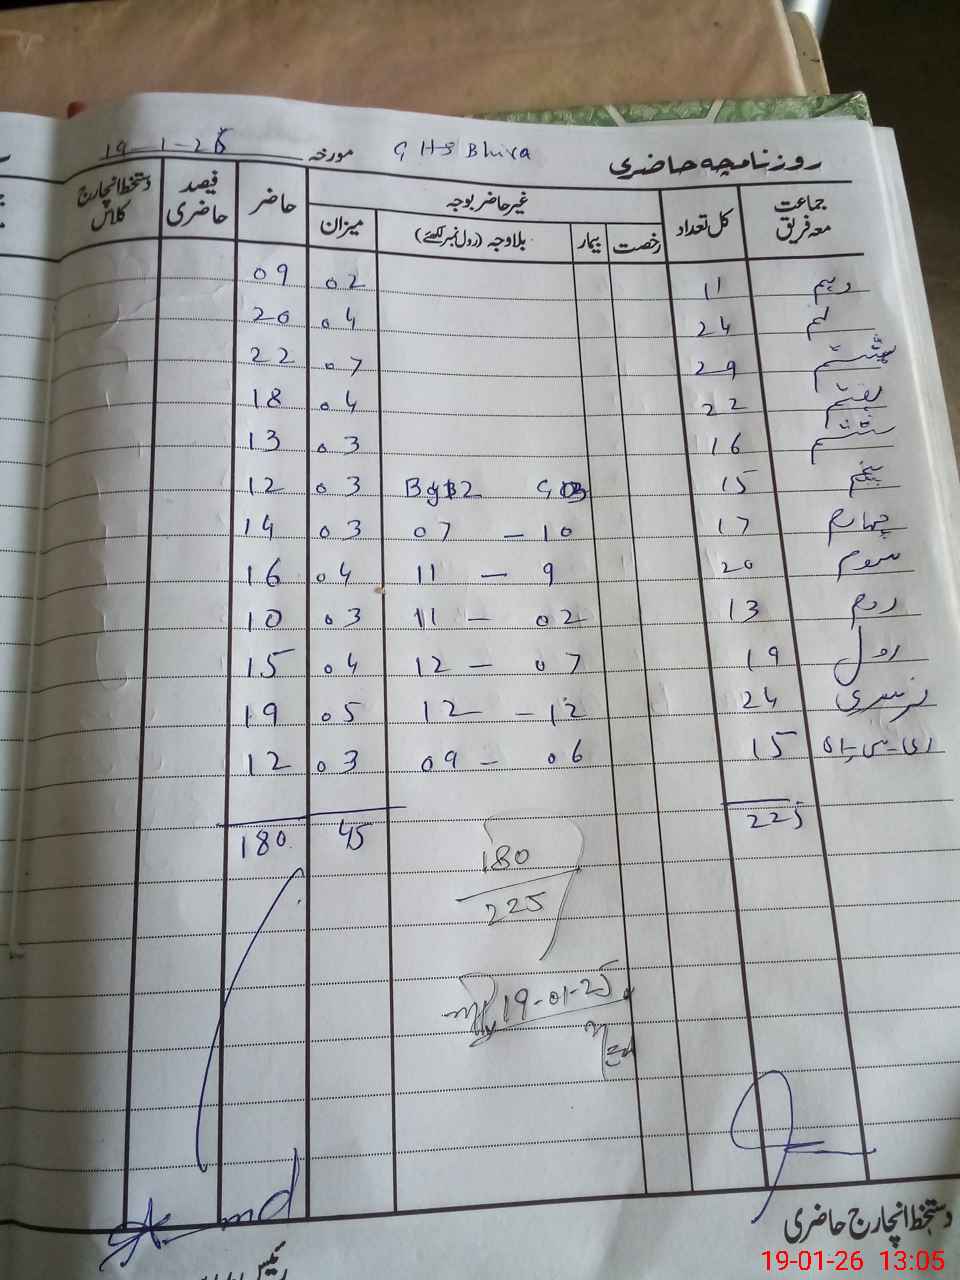 روزنامچہ حاضری GHS Bhira مورخہ 19-1-26
جماعت معہ فریق کل تعداد غیر حاضر بوجہ حاضر فیصد حاضری دستخط انچارج کلاس
رخصت بیمار بلاوجہ (رول نمبر لکھئے) میزان
دہم 11 02 09
نہم 24 04 20
ہشتم 29 07 22
ہفتم 22 04 18
ششم 16 03 13
پنجم 15 03 12
چہارم 17 07 - 10 03 14
سوم 20 11 - 9 04 16
دوم 13 11 - 02 03 10
اول 19 12 - 07 04 15
نرسری 24 12 - 12 05 19
ای-سی-ای 15 09 - 06 03 12
225 45 180
180
225
19-01-25
دستخط انچارج حاضری
رئیس
19-01-26 13:05